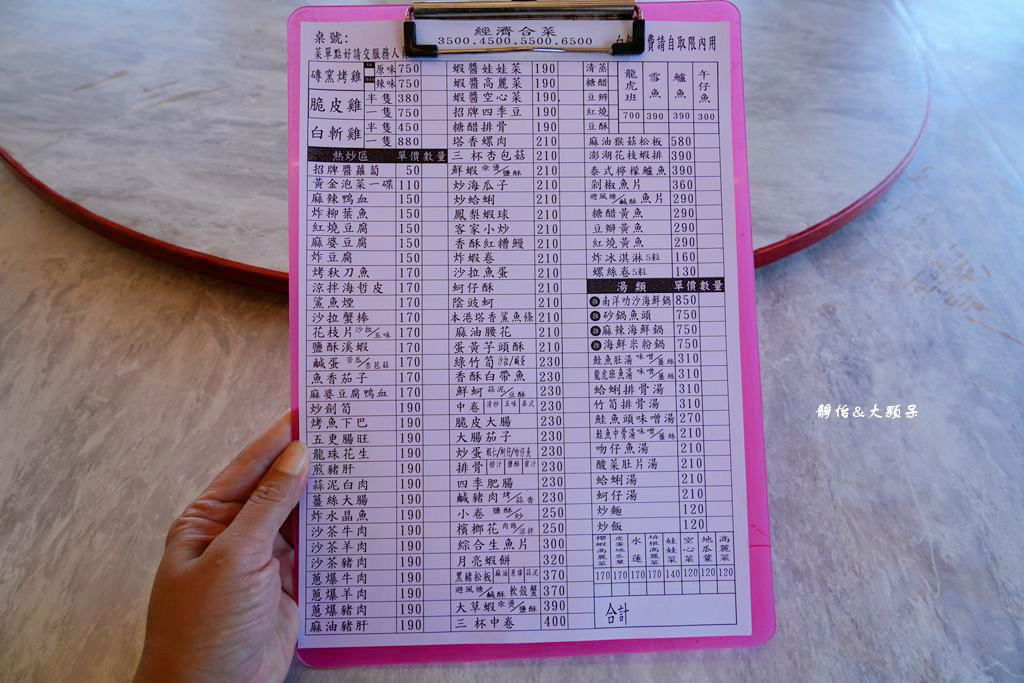 經濟合菜
3500.4500.5500.6500
桌號:
菜單點好請交服務人
費請自取限內用
磚窯烤雞 原味 750
辣味 750
脆皮雞 半隻 380
一隻 750
白斬雞 半隻 450
一隻 880
熱炒區 單價 數量
招牌醬蘿蔔 50
黃金泡菜一碟 110
麻辣鴨血 150
炸柳葉魚 150
紅燒豆腐 150
麻婆豆腐 150
炸豆腐 150
烤秋刀魚 170
涼拌海哲皮 170
鯊魚煙 170
沙拉蟹棒 170
花枝片 沙拉/五味 170
鹽酥溪蝦 170
鹹蛋 苦瓜/杏苞菇 170
魚香茄子 170
麻婆豆腐鴨血 170
炒劍筍 190
烤魚下巴 190
五更腸旺 190
龍珠花生 190
煎豬肝 190
蒜泥白肉 190
薑絲大腸 190
炸水晶魚 190
沙茶牛肉 190
沙茶羊肉 190
沙茶豬肉 190
蔥爆牛肉 190
蔥爆羊肉 190
蔥爆豬肉 190
麻油豬肝 190
蝦醬娃娃菜 190
蝦醬高麗菜 190
蝦醬空心菜 190
招牌四季豆 190
糖醋排骨 190
塔香螺肉 210
三杯杏包菇 210
鮮蝦 汆燙/鹽酥 210
炒海瓜子 210
炒蛤蜊 210
鳳梨蝦球 210
客家小炒 210
香酥紅糟鰻 210
炸蝦卷 210
沙拉魚蛋 210
蚵仔酥 210
陰豉蚵 210
本港塔香鯊魚條 210
麻油腰花 210
蛋黃芋頭酥 210
綠竹筍 沙拉/鹹蛋 230
香酥白帶魚 230
鮮蚵 蒜泥/豆酥 230
中卷 清炒 五味 泰式 230
脆皮大腸 230
大腸茄子 230
炒蛋 蝦仁/蚵仔/吻仔魚 230
排骨 橙汁 鹽酥 蜜汁 230
四季肥腸 230
鹹豬肉 烤/蒜香 230
小卷 鹽酥/炒 250
檳榔花 肉絲/涼拌 250
綜合生魚片 300
月亮蝦餅 320
黑豬松板 麻油 蔥爆 蒜泥 370
避風塘/鹹酥 軟殼蟹 370
大草蝦 汆燙/鹽酥 390
三杯中卷 400
清蒸 龍虎斑 雪魚 鱸魚 午仔魚
糖醋
豆瓣
紅燒 700 390 390 300
豆酥
麻油猴菇松板 580
澎湖花枝蝦排 390
泰式檸檬鱸魚 390
剁椒魚片 360
避風塘/鹹酥 魚片 290
糖醋黃魚 290
豆瓣黃魚 290
紅燒黃魚 290
炸冰淇淋5粒 160
螺絲卷5粒 130
湯類 單價 數量
南洋叻沙海鮮鍋 850
砂鍋魚頭 750
麻辣海鮮鍋 750
海鮮米粉鍋 750
鮭魚肚湯 味噌/薑絲 310
龍虎斑魚湯 味噌/薑絲 310
蛤蜊排骨湯 310
竹筍排骨湯 310
鮭魚頭味噌湯 270
鮭魚中骨湯 味噌/薑絲 210
吻仔魚湯 210
酸菜肚片湯 210
蛤蜊湯 210
蚵仔湯 210
炒麵 120
炒飯 120
櫻蝦高麗菜 皮蛋地瓜葉 水蓮 培根高麗菜 娃娃菜 空心菜 地瓜葉 高麗菜
170 170 170 170 140 120 120 120
合計
靜怡&大顆呆